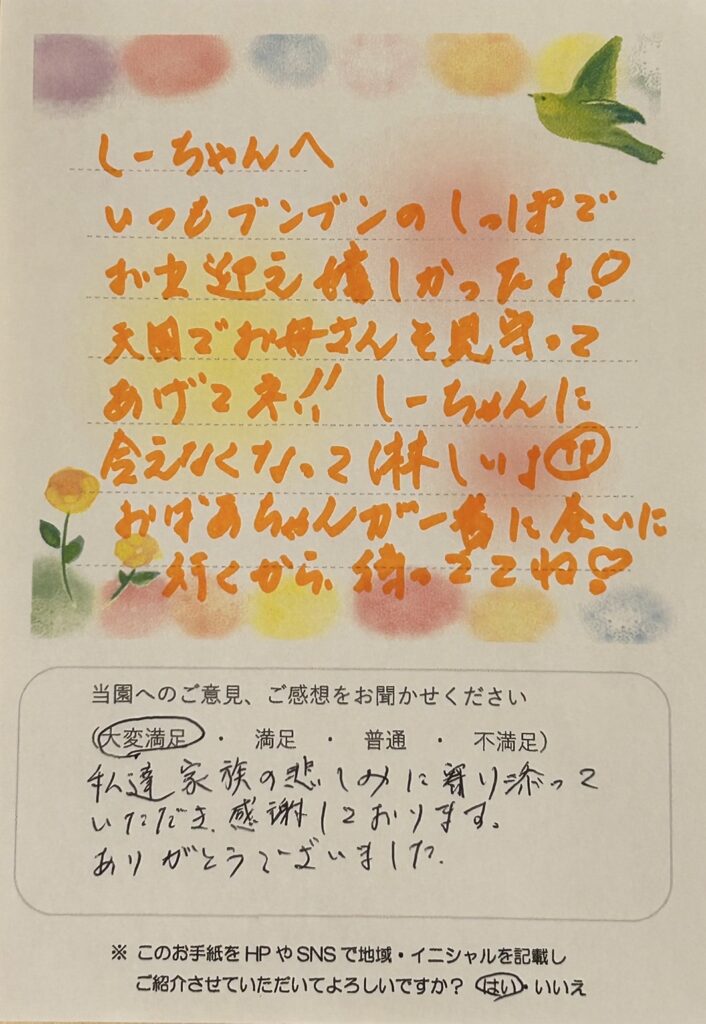 しーちゃんへ
いつもブンブンのしっぽで
お出迎え嬉しかったよ♡
天国でお母さんを見守って
あげてネ!! しーちゃんに
会えなくなって淋しいよ
おばあちゃんが一番に会いに
行くから待っててね♡
当園へのご意見、ご感想をお聞かせください
(大変満足 ・ 満足 ・ 普通 ・ 不満足)
私達家族の悲しみに寄り添って
いただき、感謝しております。
ありがとうございました。
※ このお手紙をHPやSNSで地域・イニシャルを記載し
ご紹介させていただいてよろしいですか? はい・いいえ